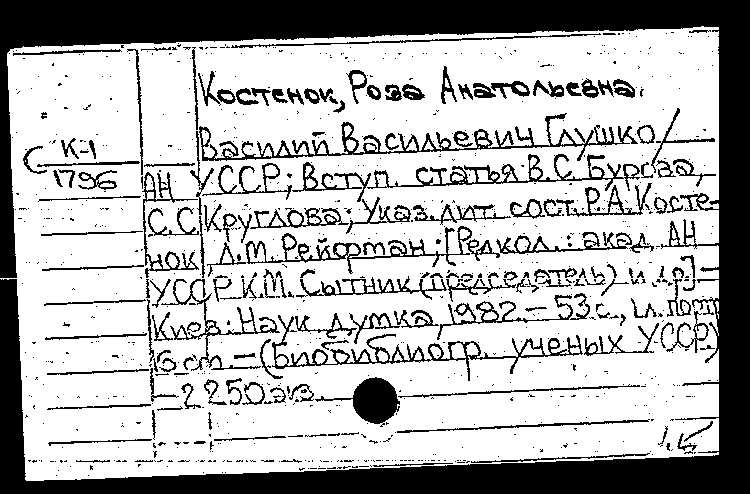 Костенок, Роза Анатольевна.
Василий Васильевич Глушко /
С К-1
1796
АН УССР; Вступ. статья В.С. Бурова,
С.С. Круглова; Указ. лит. сост. Р.А. Косте-
нок, Л.М. Рейфман; [Редкол.: акад. АН
УССР К.М. Сытник (председатель) и др.] –
Киев: Наук. думка, 1982. – 53 с., 1 л. портр.
16 см. – (Биобиблиогр. ученых УССР)
– 2 250 экз.